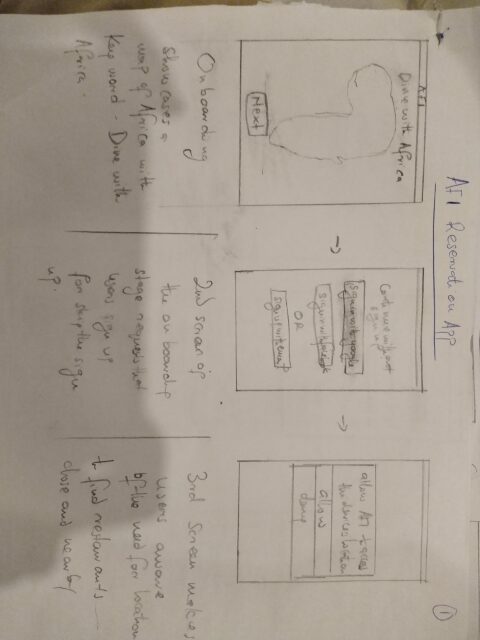 AFI Reservation App
1
AFI
Dine with Africa
Next
→
Continue without
sign up
signup with google
signup with facebook
OR
signup with email
→
allow AFI to access
this device's location
allow
deny
Onboarding
showcases a
map of Africa with
key word - Dine with
Africa.
2nd screen of
the onboarding
stage requests that
users sign up
or skip the sign
up.
3rd screen makes
users aware
of the need for location
to find restaurants
close and nearby